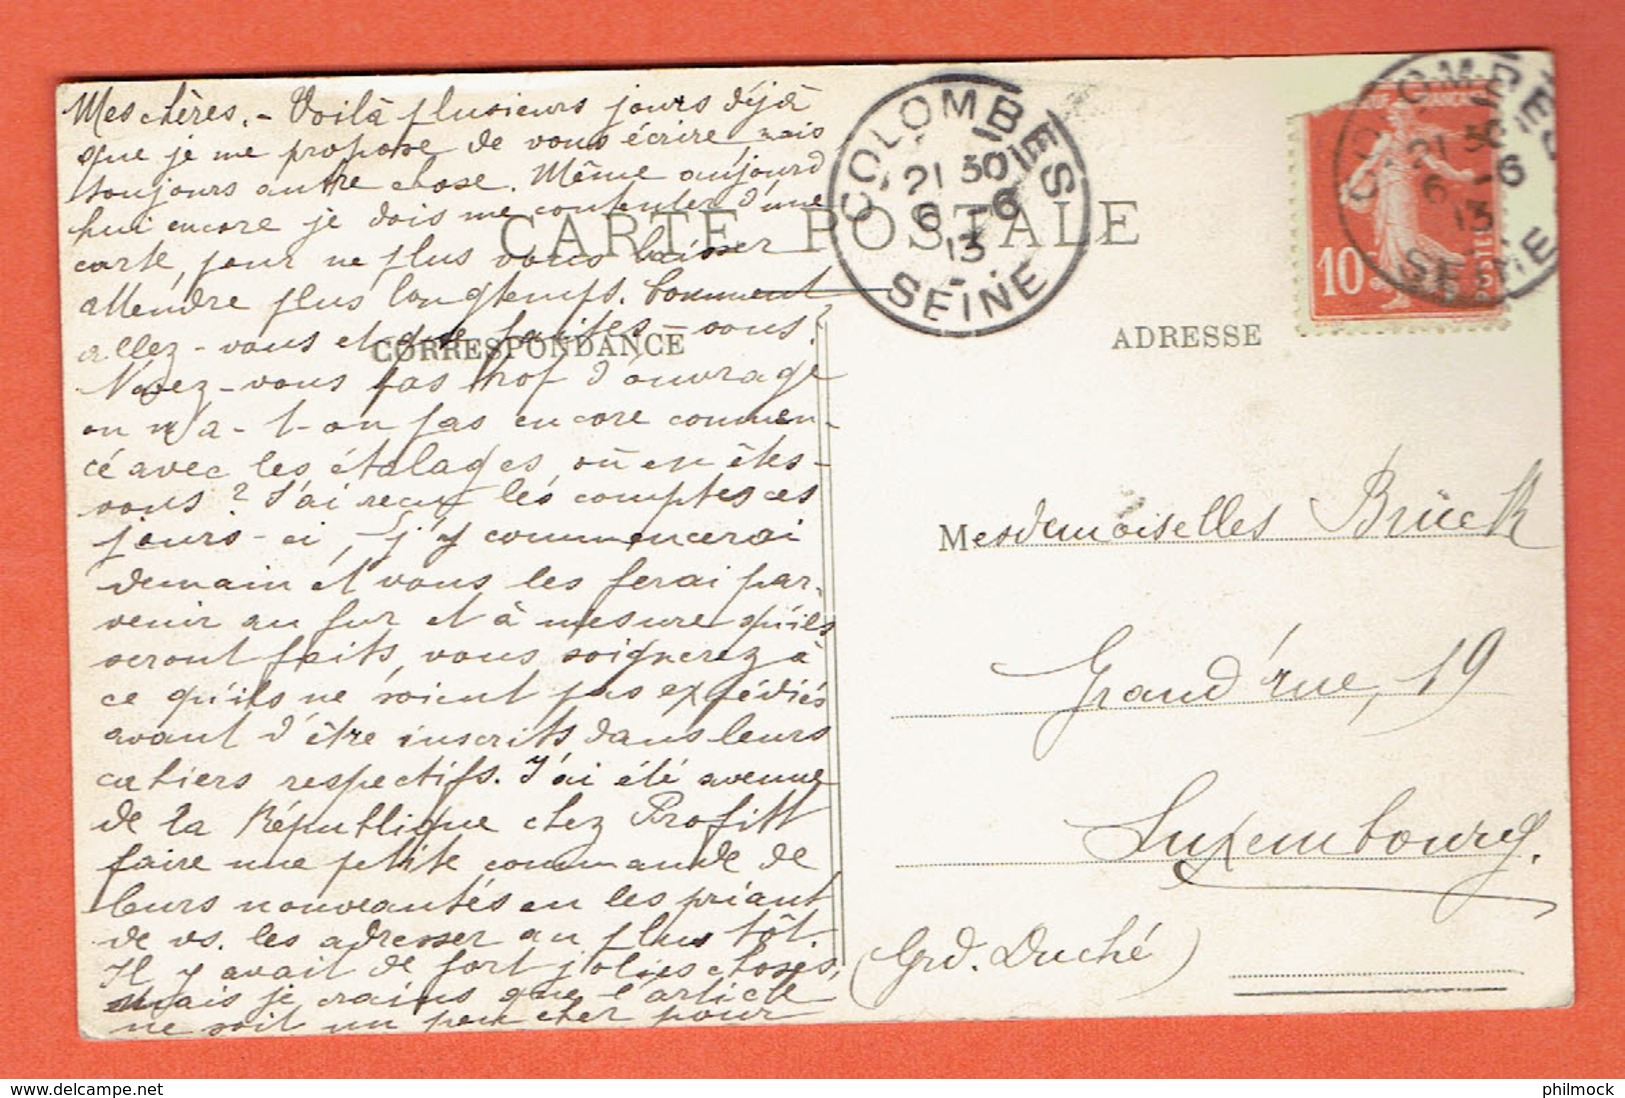 Mes chères. - Voilà plusieurs jours déjà
que je me propose de vous écrire mais
toujours autre chose. Même aujourd
hui encore je dois me contenter d'une
carte, pour ne plus vous laisser
attendre plus longtemps. Comment
allez-vous et que faites-vous?
N'avez-vous pas trop d'ouvrage
on n'a-t-on pas encore commen-
cé avec les étalages, où en êtes-
vous? J'ai reçu les comptes ces
jours-ci, j'y commencerai
demain et vous les ferai par-
venir au fur et à mesure qu'ils
seront faits, vous soignerez à
ce qu'ils ne soient pas expédiés
avant d'être inscrits dans leurs
cahiers respectifs. J'ai été avenue
de la République chez Profitt
faire une petite commande de
leurs nouveautés en les priant
de vs. les adresser au plus tôt.
Il y avait de fort jolies choses,
mais je crains que l'article
ne soit un peu cher pour
CARTE POSTALE
CORRESPONDANCE
ADRESSE
COLOMBES
21 30
6 - 6
13
SEINE
10
COLOMBES
21 30
6 - 6
13
SEINE
Mesdemoiselles Brück
Grand'rue, 19
Luxembourg.
(Grd. Duché)
delcampe.net
philmock